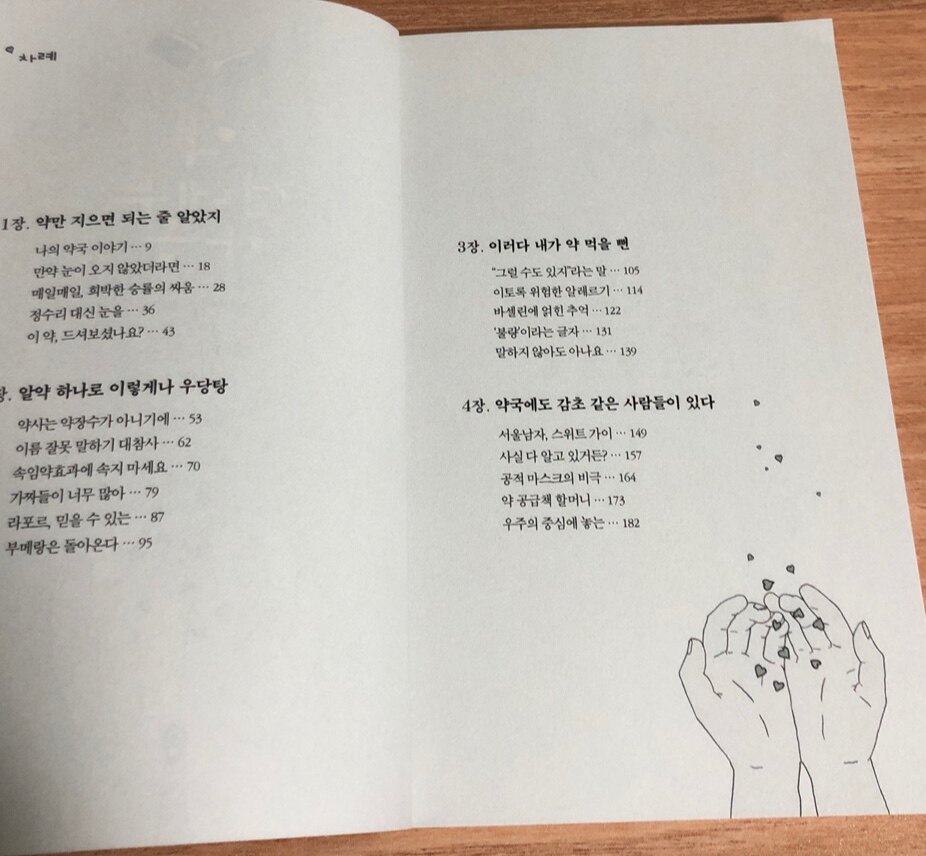 차례
1장. 약만 지으면 되는 줄 알았지
나의 약국 이야기 … 9
만약 눈이 오지 않았더라면 … 18
매일매일, 희박한 승률의 싸움 … 28
정수리 대신 눈을 … 36
이 약, 드셔보셨나요? … 43
장. 알약 하나로 이렇게나 우당탕
약사는 약장수가 아니기에 … 53
이름 잘못 말하기 대참사 … 62
속임약효과에 속지 마세요 … 70
가짜들이 너무 많아 … 79
라포르, 믿을 수 있는 … 87
부메랑은 돌아온다 … 95
3장. 이러다 내가 약 먹을 뻔
“그럴 수도 있지”라는 말 … 105
이토록 위험한 알레르기 … 114
바셀린에 얽힌 추억 … 122
‘불량’이라는 글자 … 131
말하지 않아도 아나요 … 139
4장. 약국에도 감초 같은 사람들이 있다
서울남자, 스위트 가이 … 149
사실 다 알고 있거든? … 157
공적 마스크의 비극 … 164
약 공급책 할머니 … 173
우주의 중심에 놓는 … 182